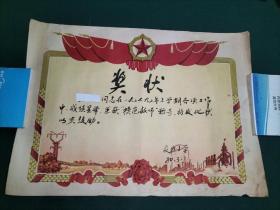 奖状
同志在一九七九年上学期各项工作
中,成绩显著,荣获"模范教师"称号,特发此状
以资鼓励。
小学
80.3.